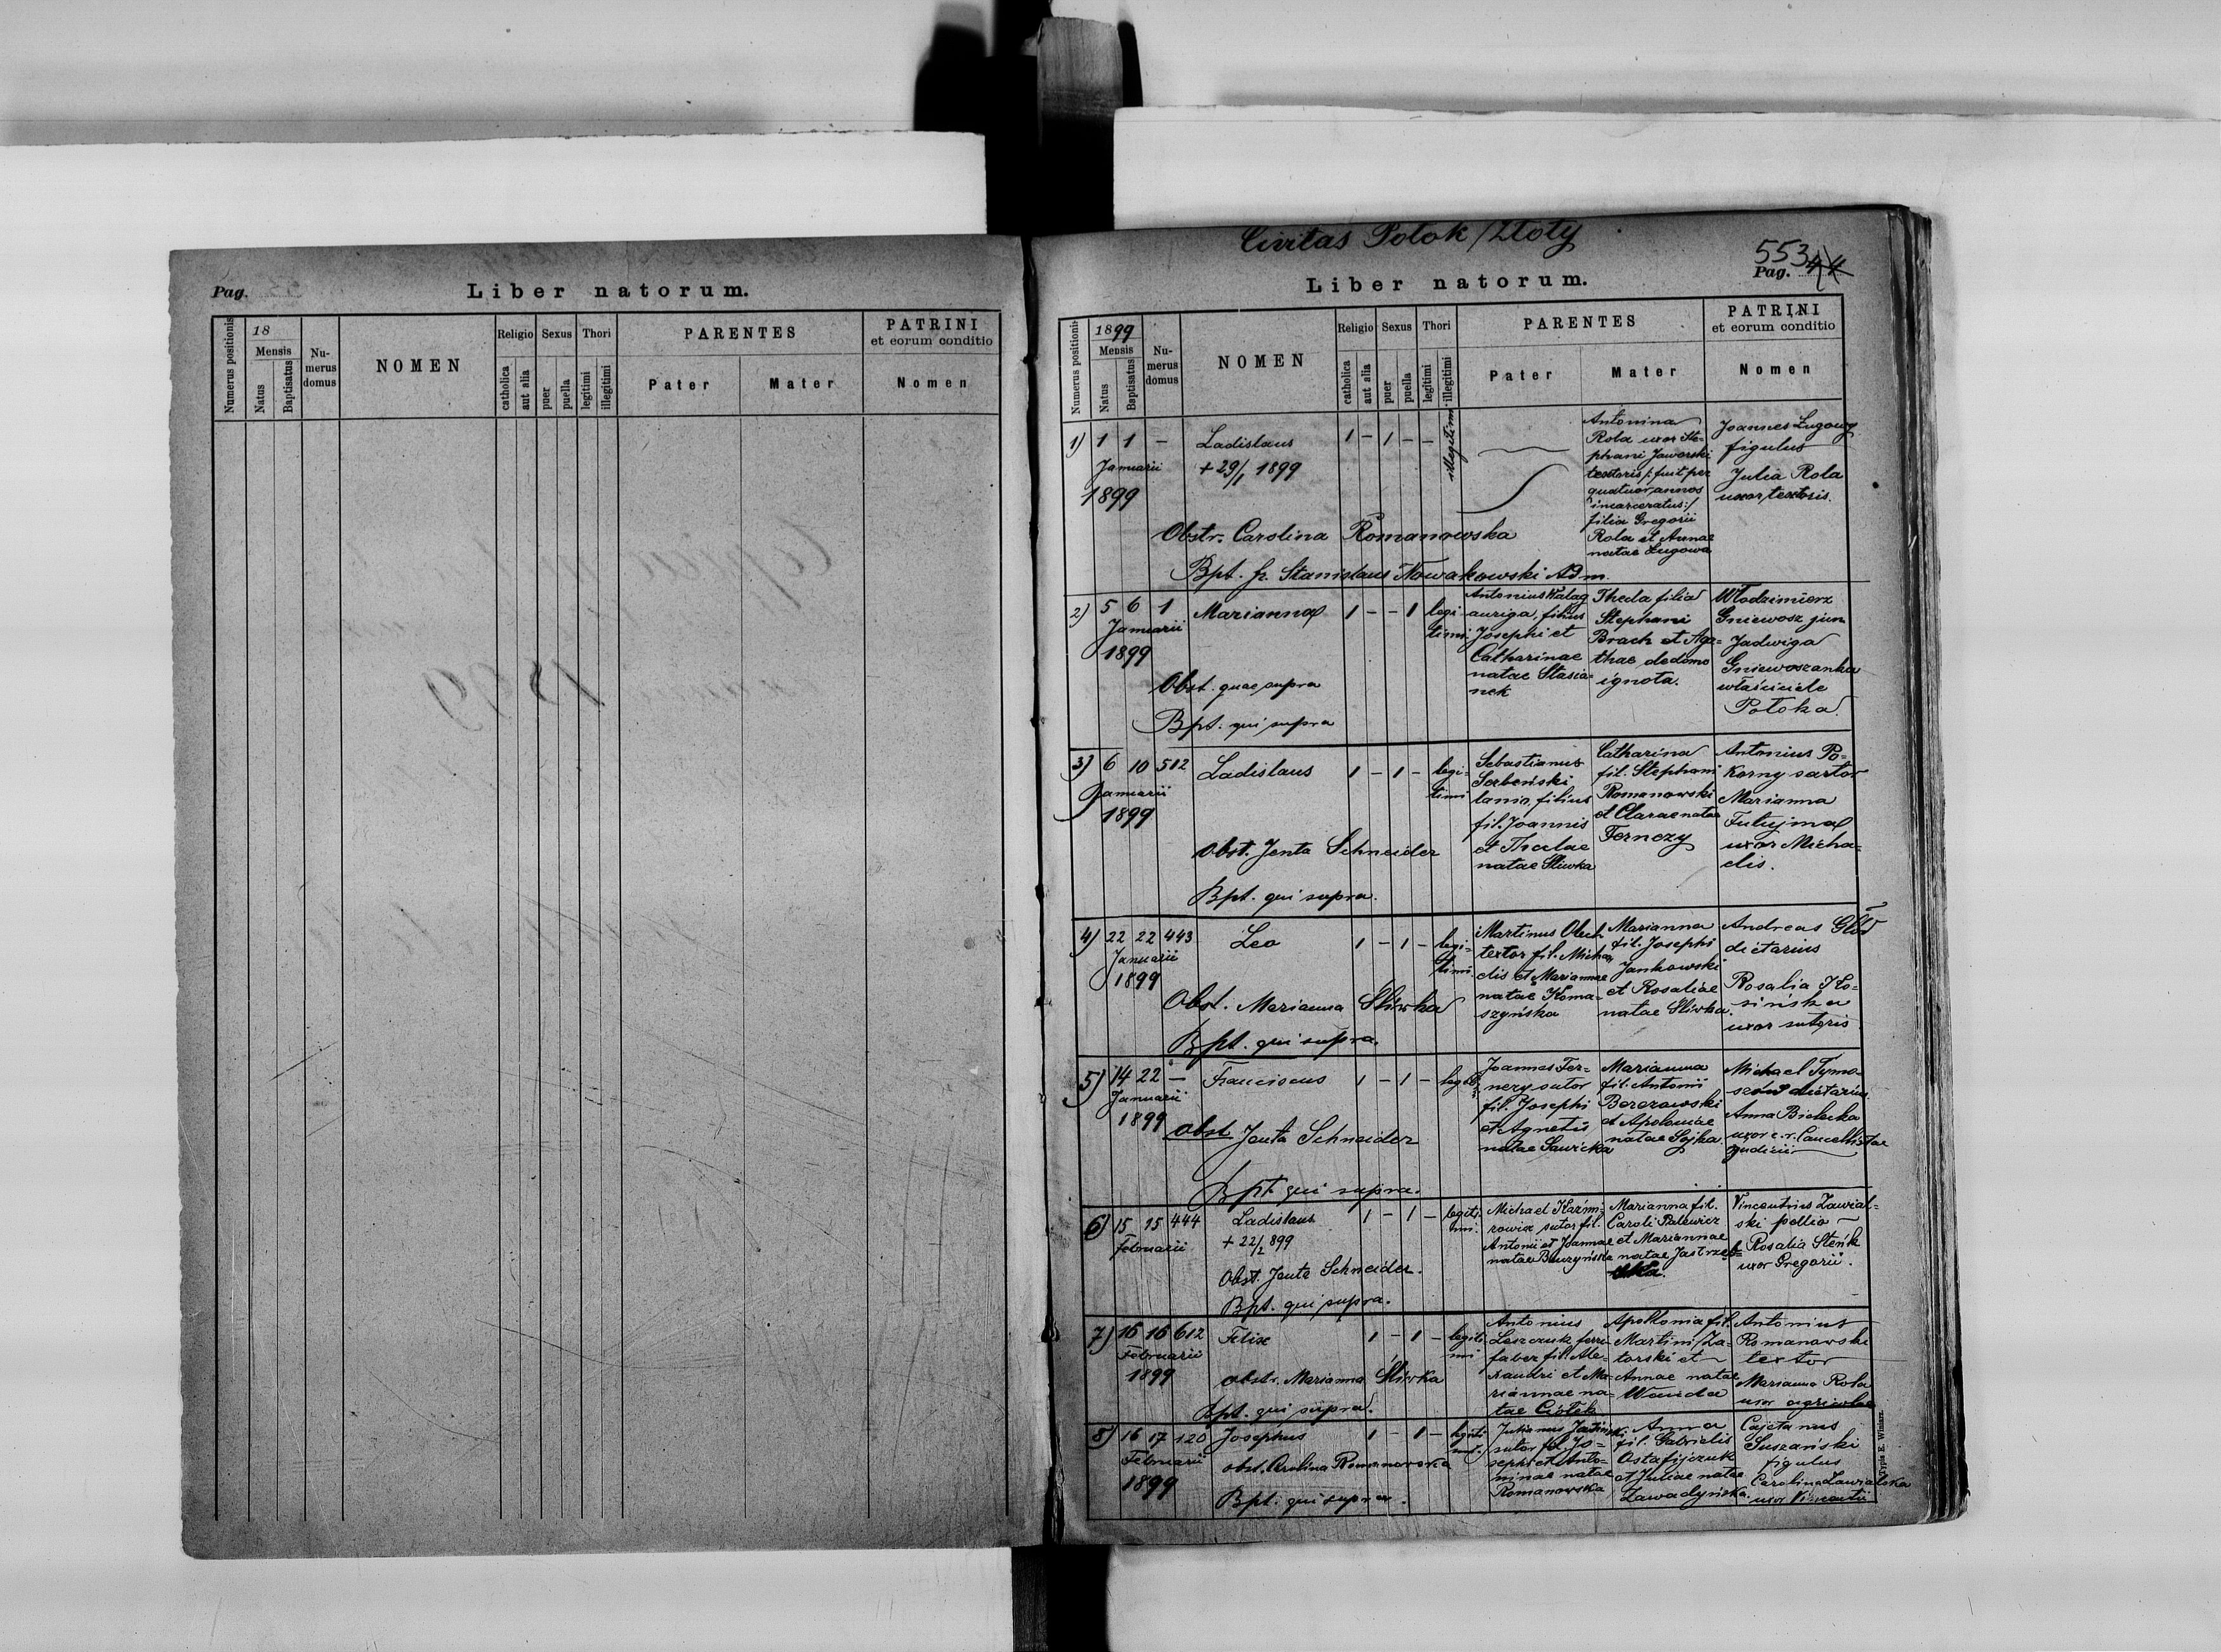 Pag.
Liber natorum.
Numerus positionis
18
Mensis
Natus
Baptisatus
Nu-
merus
domus
NOMEN
Religio
catholica
aut alia
Sexus
puer
puella
Thori
legitimi
illegitimi
PARENTES
Pater
Mater
PATRINI
et eorum conditio
Nomen
Civitas Potok/Złoty
553
Pag. 44
Liber natorum.
Numerus positionis
1899
Mensis
Natus
Baptisatus
Nu-
merus
domus
NOMEN
Religio
catholica
aut alia
Sexus
puer
puella
Thori
legitimi
illegitimi
PARENTES
Pater
Mater
PATRINI
et eorum conditio
Nomen
1) 1 1 —
Januarii
1899
Ladislaus
+ 29/1 1899
1 – 1 – –
illegitimi
Antonina
Rola uxor Ste-
phani Jaworski
textoris /: fuit per
quatuor annos
incarceratus :/
filia Gregorii
Rola et Annae
natae Ługowa
Joannes Ługowy
figulus
Julia Rola
uxor textoris.
Obstr. Carolina Romanowska
Bpt. fr. Stanislaus Nowakowski Adm.
2) 5 6 1
Januarii
1899
Marianna
1 – – 1
legi-
timi.
Antonius Walag
auriga, filius
Josephi et
Catharinae
natae Stasia-
nek
Thecla filia
Stephani
Brach et Aga-
thae de domo
ignota.
Włodzimierz
Gniewosz jun
Jadwiga
Gniewoszanka
właściciele
Potoka.
Obst. quae supra
Bpt. qui supra
3) 6 10 512
Januarii
1899
Ladislaus
1 – 1 –
legi-
timi
Sebastianus
Serbeński
lanio, filius
fil. Joannis
et Theclae
natae Śliwka
Catharina
fil. Stephani
Romanowski
et Clarae natae
Fernezy
Antonius Po-
korny sartor
Marianna
Futujma
uxor Micha-
elis.
Obst. Jenta Schneider
Bpt. qui supra.
4) 22 22 443
Januarii
1899
Leo
1 – 1 –
legi-
timi.
Martinus Olech
textor fil. Micha
elis et Mariannae
natae Koma-
szyńska
Marianna
fil. Josephi
Jankowski
et Rosaliae
natae Śliwka.
Andreas Głód
dietarius
Rosalia Ko-
sińska
uxor sutoris
Obst. Marianna Śliwka
Bpt. qui supra.
5) 14 22 —
Januarii
1899
Franciscus
1 – 1 –
Joannes Fer-
nezy sutor
fil. Josephi
et Agnetis
natae Sawicka
Marianna
fil. Antonii
Berezowski
et Apoloniae
natae Sojka.
Michael Tymo-
dietarius
Anna Bielecka
uxor c. r. Cancellistae
judicii
Obst. Jenta Schneider
Bpt. qui supra.
6) 15 15 444
Februarii
Ladislaus
+ 22/2 899
1 – 1 –
legiti-
mi.
Michael Kazimi-
rowicz, sutor fil.
Antonii et Joannae
natae Buczyńska
Marianna fil.
Caroli Palewicz
et Mariannae
natae Jastrzęb-
ska.
Vincentius Zawial-
ski pellio
Rosalia Steńk
uxor Gregorii.
Obst. Jenta Schneider.
Bpt. qui supra.
7) 16 16 612
Februarii
1899
Felix
1 – 1 –
legiti-
mi
Antonius
Leszczuk ferri-
faber fil. Ale-
xandri et Ma-
riannae na-
tae Ciołek
Apollonia fil.
Martini Za-
torski et
Annae natae
Antonius
Romanowski
textor
Marianna Rola
uxor agricolae
obstr. Marianna Śliwka
Bpt. qui supra.
8) 16 17 120
Februarii
1899
Josephus
1 – 1 –
legiti
mi.
Julianus
sutor fil. Jo-
sephi et Anto-
ninae natae
Romanowska
Anna
fil. Gabrielis
Ostafijczuk
et Juliae natae
Zawadyńska.
Cajetanus
Suszański
figulus
Carolina Zawialska
uxor Vincentii
obst. Carolina Romanowska
Bpt. qui supra.
Typis E. Winiarz.